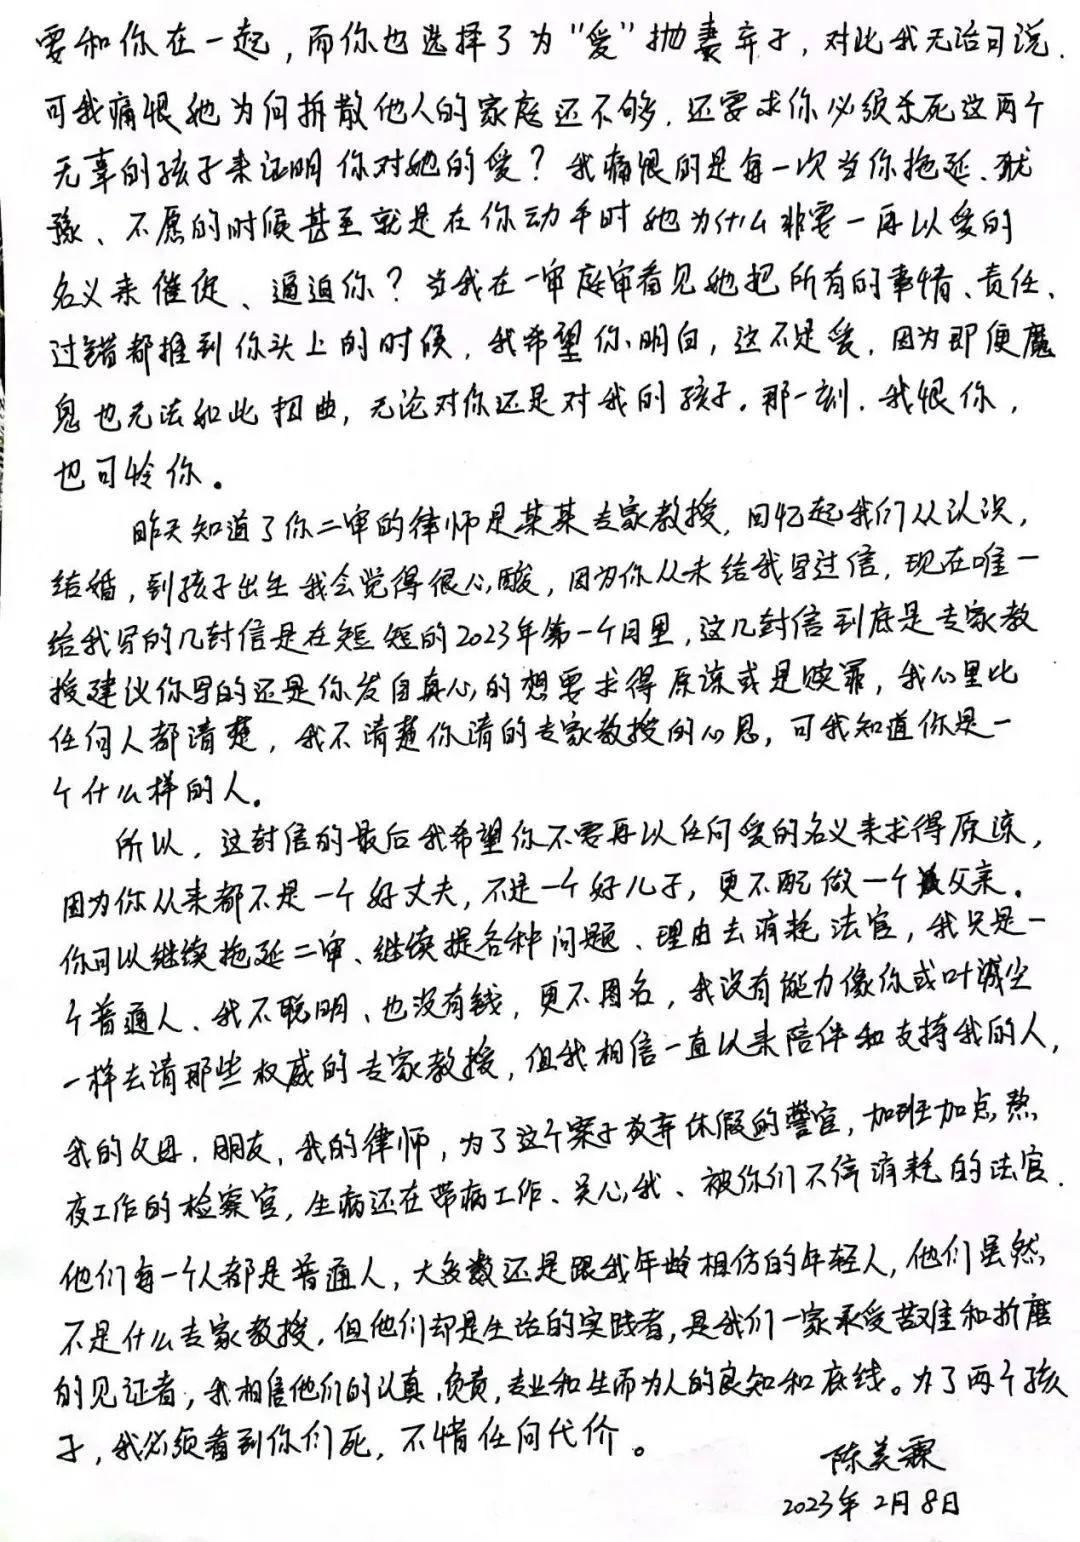 要和你在一起，而你也选择了为“爱”抛妻弃子，对此我无话可说．
可我痛恨她为何拆散他人的家庭还不够．还要求你必须杀死这两个
无辜的孩子来证明你对她的爱？我痛恨的是每一次当你拖延、犹
豫、不愿的时候甚至就是在你动手时她为什么非要一再以爱的
名义来催促、逼迫你？当我在一审庭审看见她把所有的事情、责任、
过错都推到你头上的时候，我希望你明白，这不是爱．因为即便魔
鬼也无法如此扭曲，无论对你还是对我的孩子。那一刻．我恨你，
也可怜你。
昨天知道了你二审的律师是某某专家教授，回忆起我们从认识，
结婚，到孩子出生我会觉得很心酸，因为你从未给我写过信，现在唯一
给我写的几封信是在短短的2023年第一个月里，这几封信到底是专家教
授建议你写的还是你发自真心的想要求得原谅或是赎罪，我心里比
任何人都清楚，我不清楚你请的专家教授的心思，可我知道你是一
个什么样的人。
所以，这封信的最后我希望你不要再以任何爱的名义来求得原谅，
因为你从来都不是一个好丈夫，不是一个好儿子，更不配做一个父亲．
你可以继续拖延二审、继续提各种问题、理由去消耗法官，我只是一
个普通人、我不聪明、也没有钱，更不图名，我没有能力像你或叶诚尘
一样去请那些权威的专家教授，但我相信一直以来陪伴和支持我的人，
我的父母，朋友，我的律师，为了这个案子放弃休假的警官，加班加点熬
夜工作的检察官，生病还在带病工作、关心我、被你们不停消耗的法官．
他们每一个人都是普通人，大多数还是跟我年龄相仿的年轻人，他们虽然
不是什么专家教授，但他们却是生活的实践者，是我们一家承受苦难和折磨
的见证者，我相信他们的认真，负责，专业和生而为人的良知和底线。为了两个孩
子，我必须看到你们死，不惜任何代价。
陈美霖
2023年2月8日